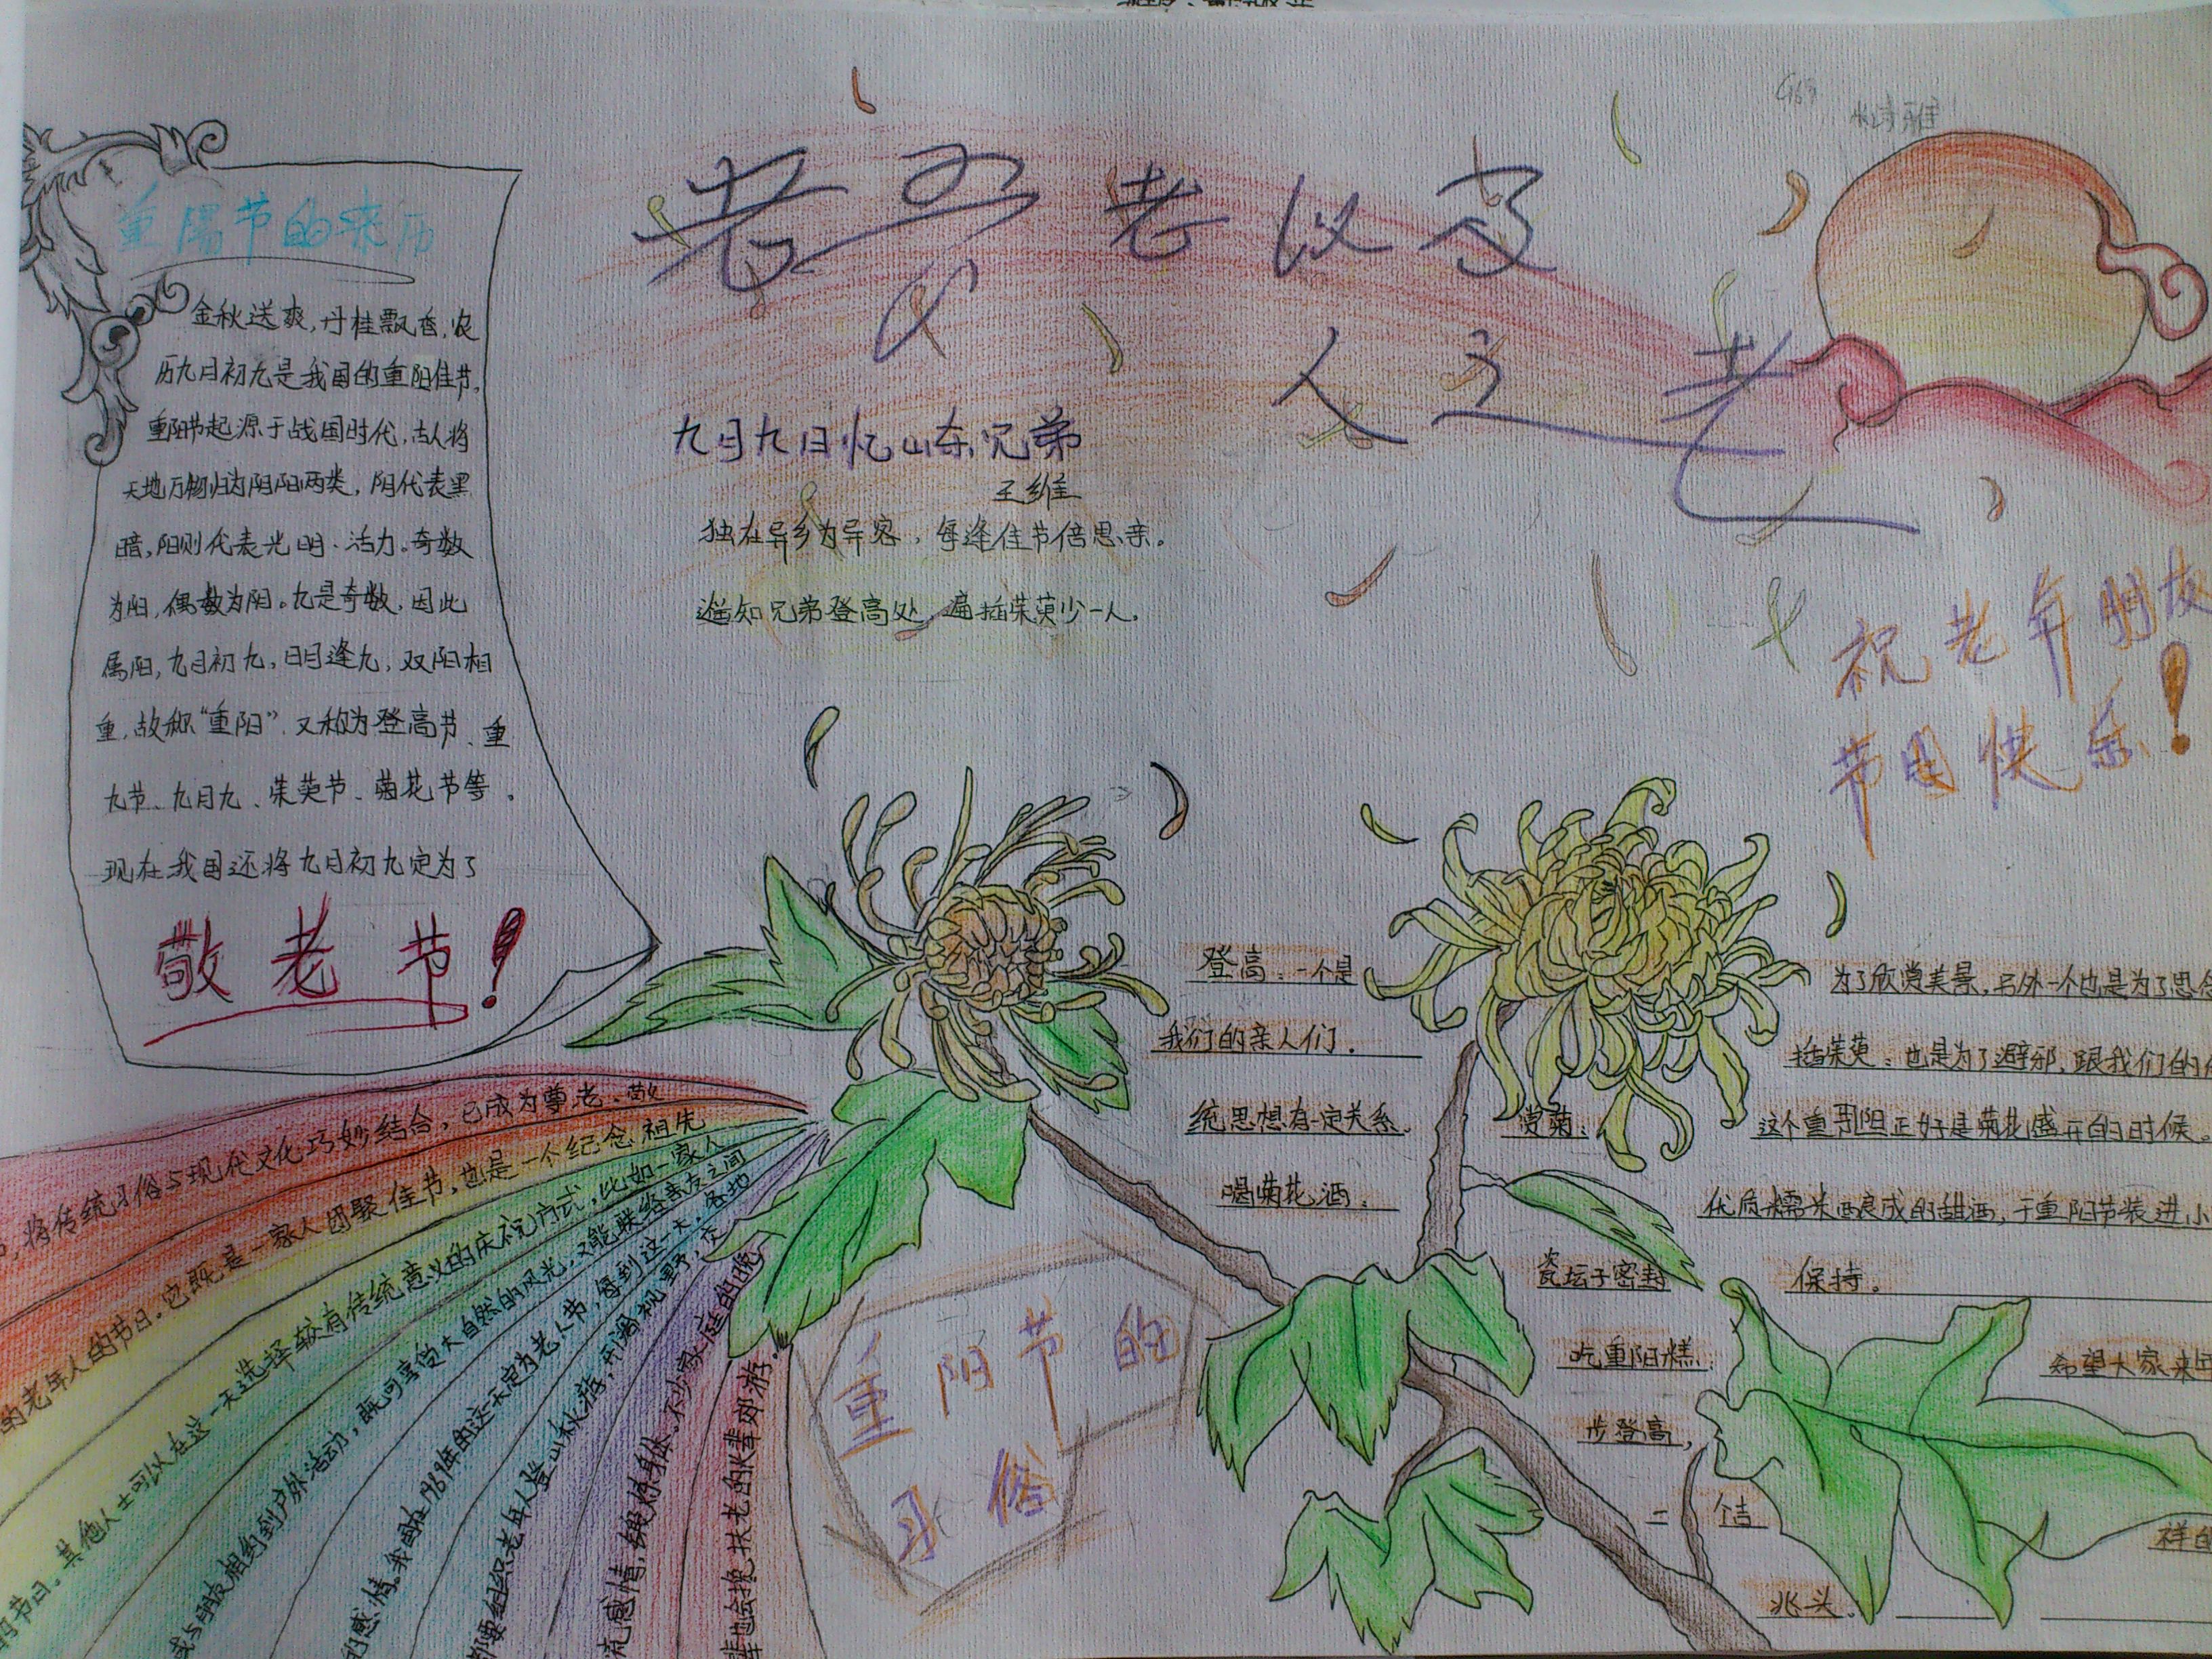 重陽节的来历
金秋送爽，丹桂飘香，农
历九月初九是我国的重阳佳节。
重阳节起源于战国时代，古人将
天地万物归为阴阳两类，阴代表黑
暗，阳则代表光明、活力。奇数
为阳，偶数为阴。九是奇数，因此
属阳，九月初九，日月逢九，双阳相
重，故称“重阳”，又称为登高节、重
九节、九月九、茱萸节、菊花节等。
现在我国还将九月初九定为了
敬老节！
老吾老以
人之老
九月九日忆山东兄弟
王维
独在异乡为异客，每逢佳节倍思亲。
遥知兄弟登高处，遍插茱萸少一人。
祝老年朋友
节日快乐！
登高：一个是 为了欣赏美景，另外一个也是为了思念
我们的亲人们. 插茱萸：也是为了避邪，跟我们的
统思想有一定关系. 赏菊： 这个重阳正好是菊花盛开的时候.
喝菊花酒： 优质糯米酿成的甜酒，于重阳节装进小
瓷坛子密封 保持。
吃重阳糕： 希望大家来年
步登高，
二 个吉 祥的
兆头.
重阳节的
习俗
，将传统习俗与现代文化巧妙结合，已成为尊老、敬
的老年人的节日。它既是一家人团聚佳节，也是一个纪念祖先
的节日。其他人士可以在这一天选择较有传统意义的庆祝方式，比如一家人
或与朋友相约到户外活动，既可享受大自然的风光，又能联络亲友之间
的感情。我国在1989年的这一天定为老人节，每到这一天，各地
都要组织老年人登山秋游，开阔视野，交
流感情，锻炼身体。不少家庭的晚
辈也会搀扶老的长辈郊游.